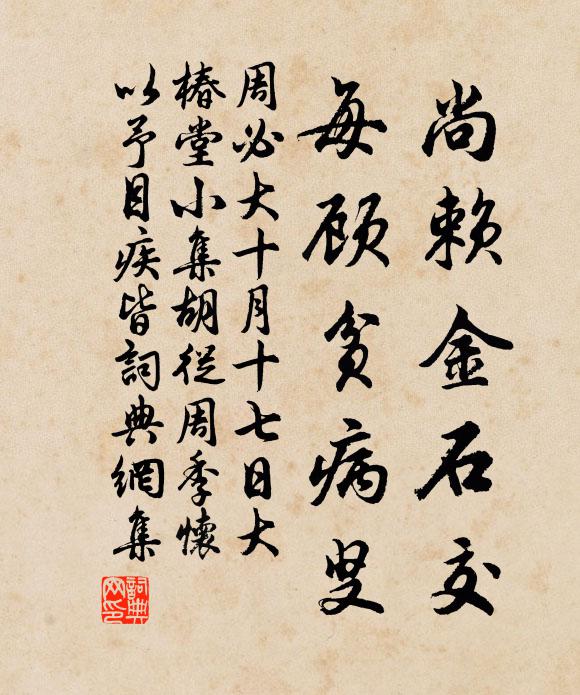 尚賴金石交
每顧貧病叟
周必大十月十七日大
椿堂小集胡從周季懷
以予目疾皆詞典網集
詞典网印